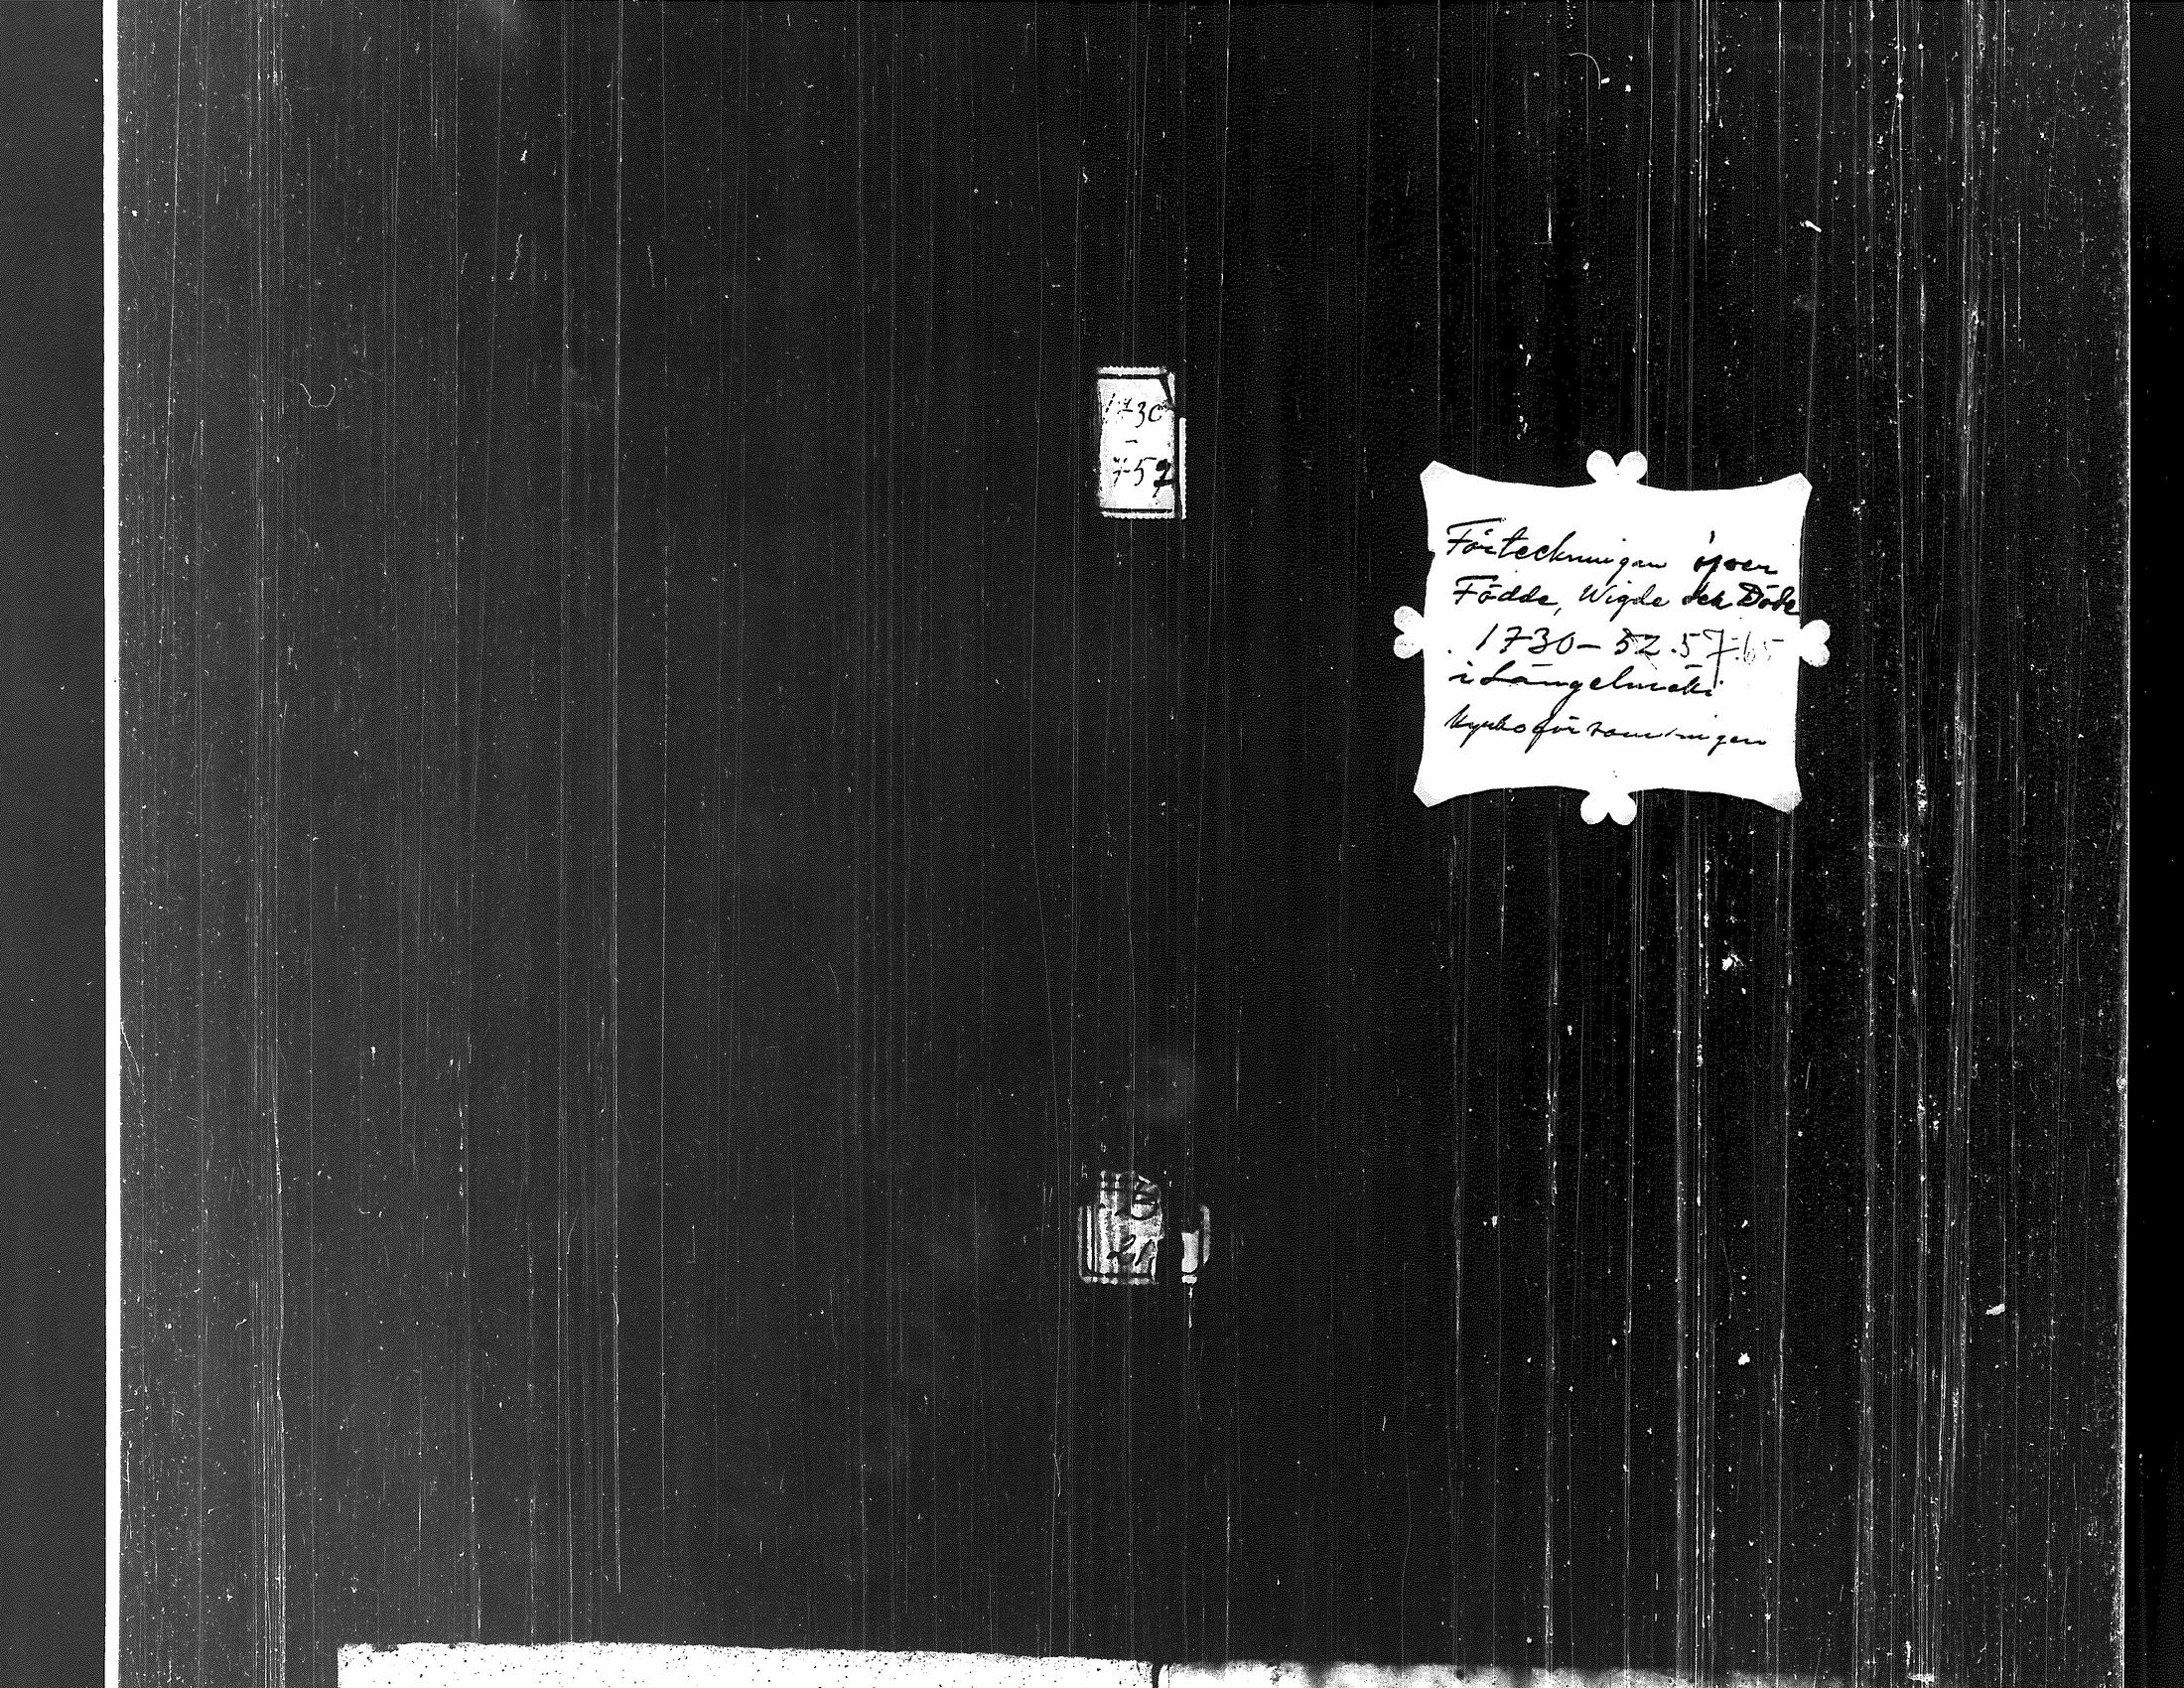 1730
-
757
Förteckningar öfver
Födde, Wigde och Döde
1730-32.57.65
i Längelmäki
kyrkoförsamlingen
B
21